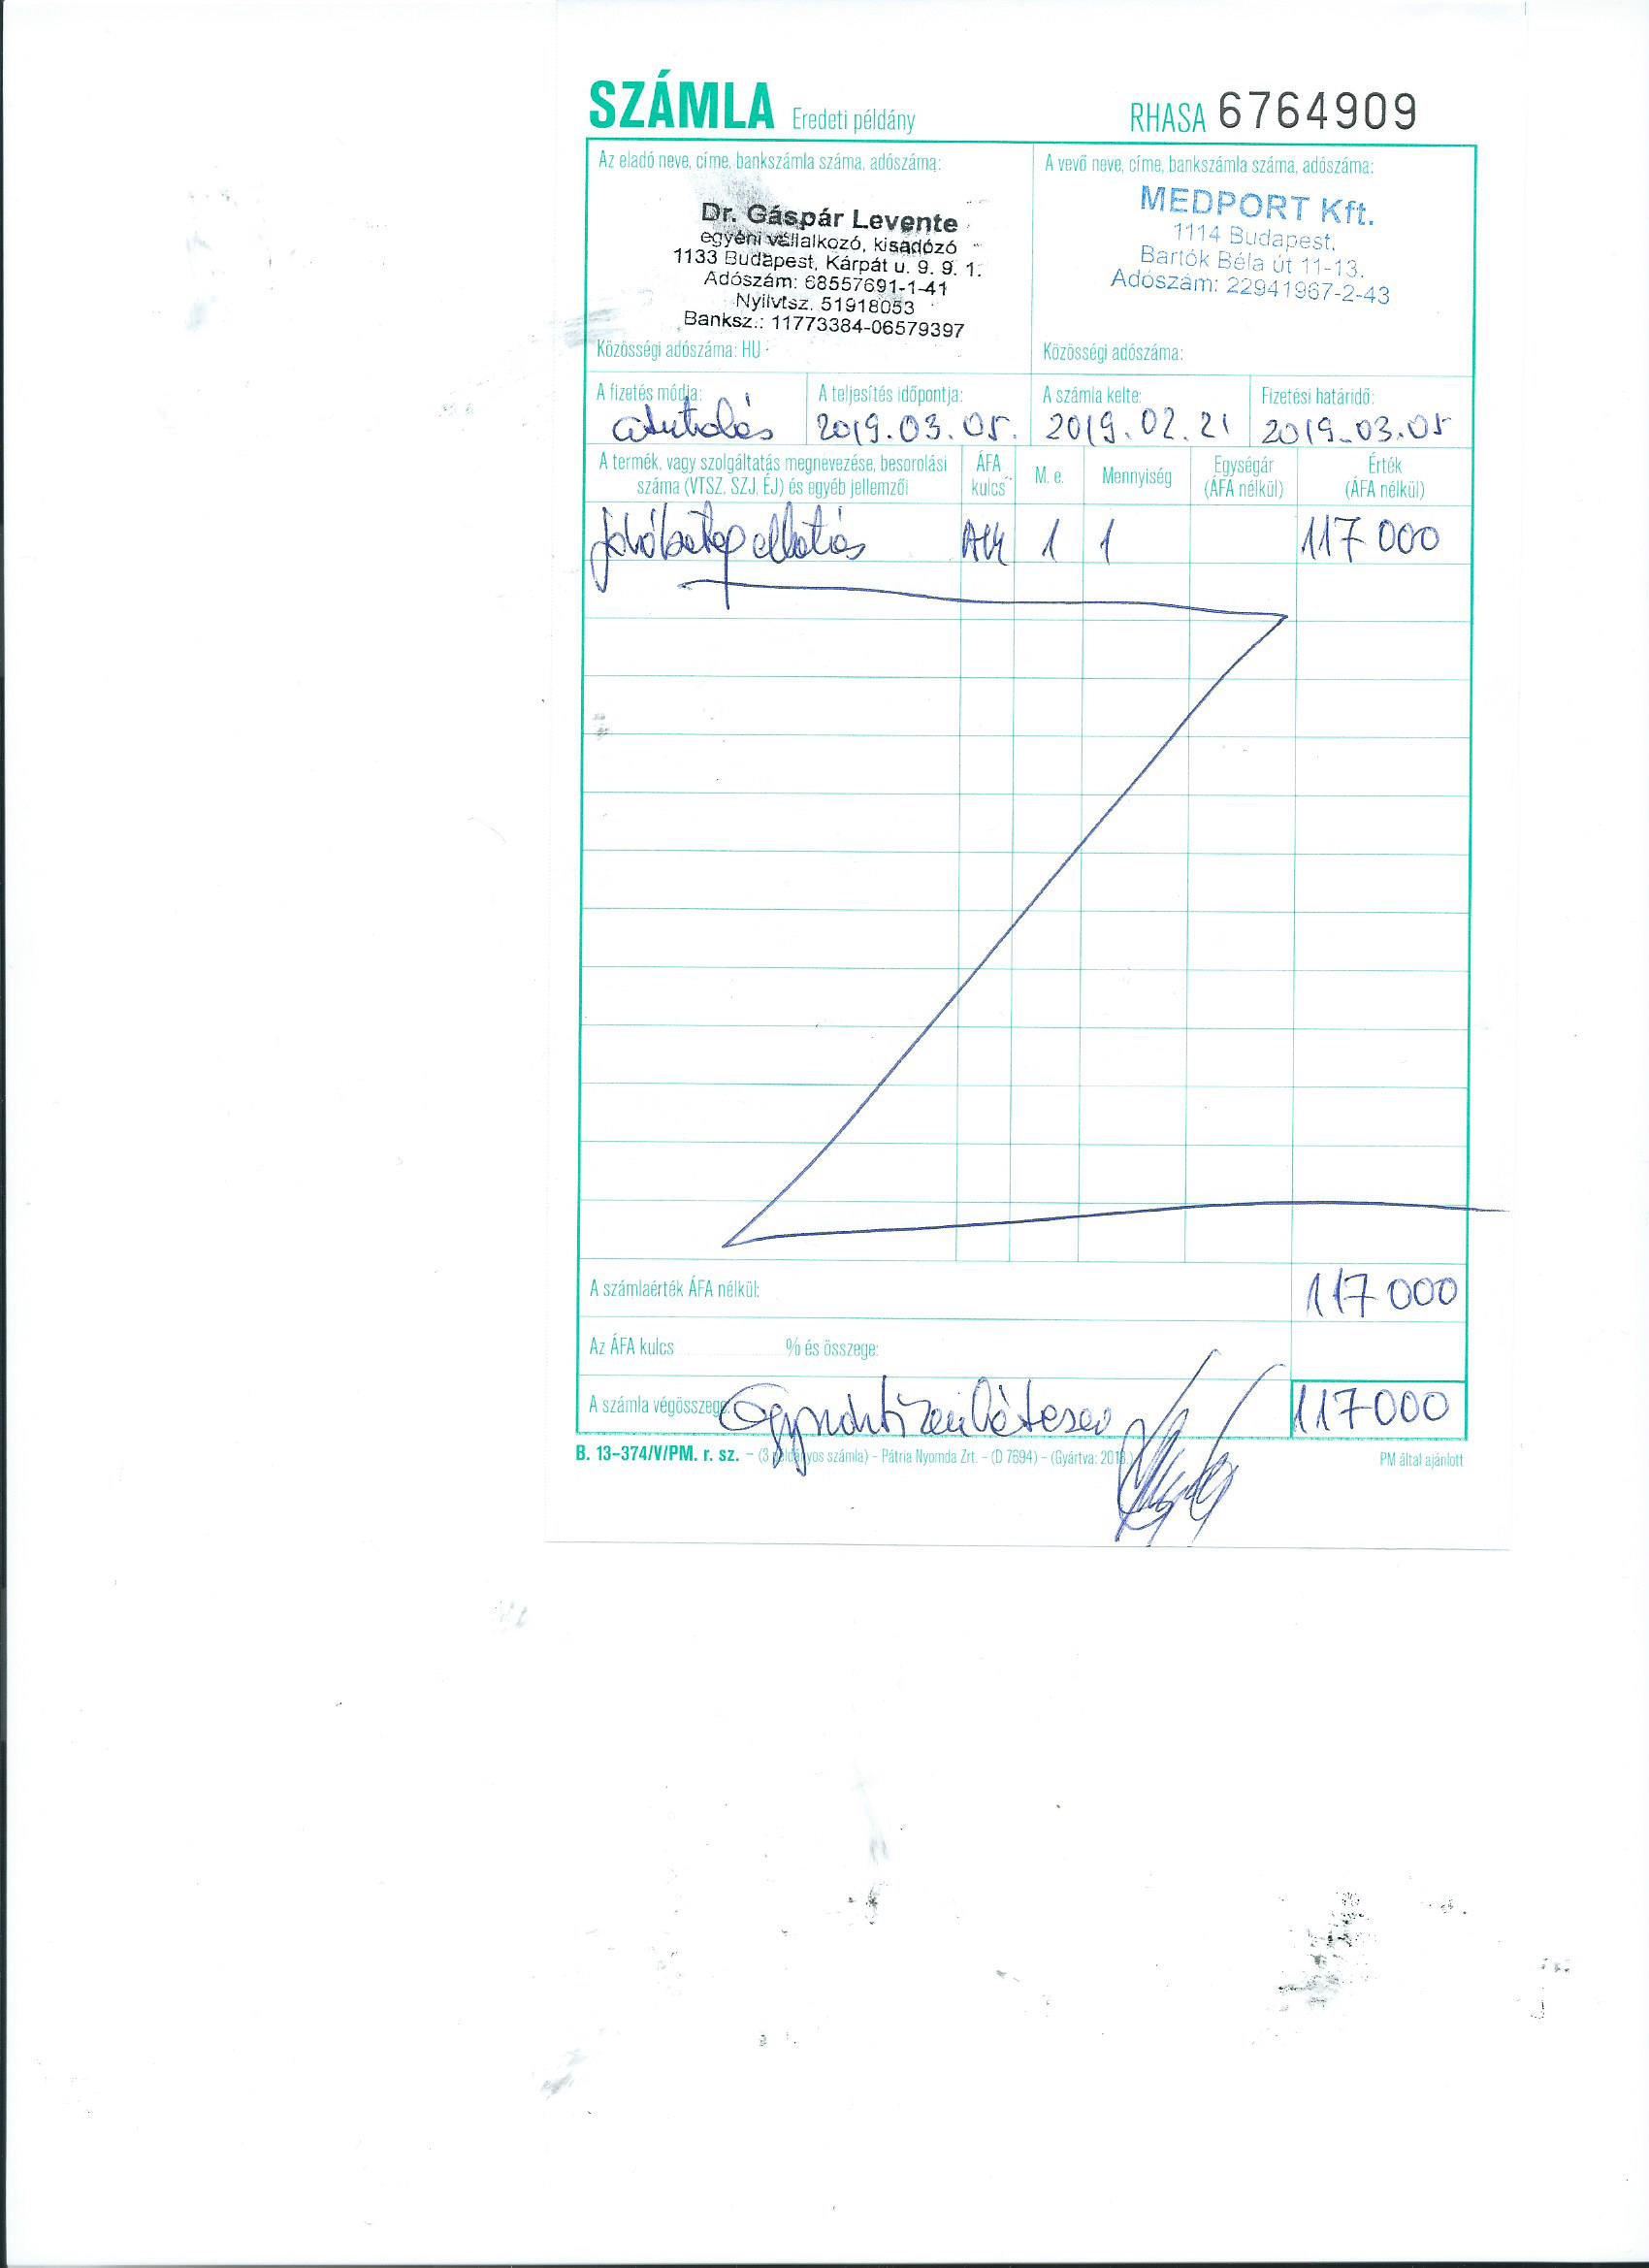 SZÁMLA Eredeti példány RHASA 6764909
Az eladó neve, címe, bankszámla száma, adószáma:
Dr. Gáspár Levente
egyéni vállalkozó, kisadózó
1133 Budapest, Kárpát u. 9. 9. 1.
Adószám: 68557691-1-41
Nyilvtsz. 51918053
Banksz.: 11773384-06579397
Közösségi adószáma: HU
A vevő neve, címe, bankszámla száma, adószáma:
MEDPORT Kft.
1114 Budapest,
Bartók Béla út 11-13.
Adószám: 22941967-2-43
Közösségi adószáma:
A fizetés módja: A teljesítés időpontja: A számla kelte: Fizetési határidő:
átutalás 2019.03.05. 2019.02.21 2019.03.05
A termék, vagy szolgáltatás megnevezése, besorolási száma (VTSZ, SZJ, ÉJ) és egyéb jellemzői ÁFA kulcs M. e. Mennyiség Egységár (ÁFA nélkül) Érték (ÁFA nélkül)
járóbeteg ellátás 1 1 117 000
A számlaérték ÁFA nélkül: 117 000
Az ÁFA kulcs % és összege:
A számla végösszege: 117000
B. 13–374/V/PM. r. sz. – (3 példányos számla) – Pátria Nyomda Zrt. – (D 7694) – (Gyártva: 2018.) PM által ajánlott